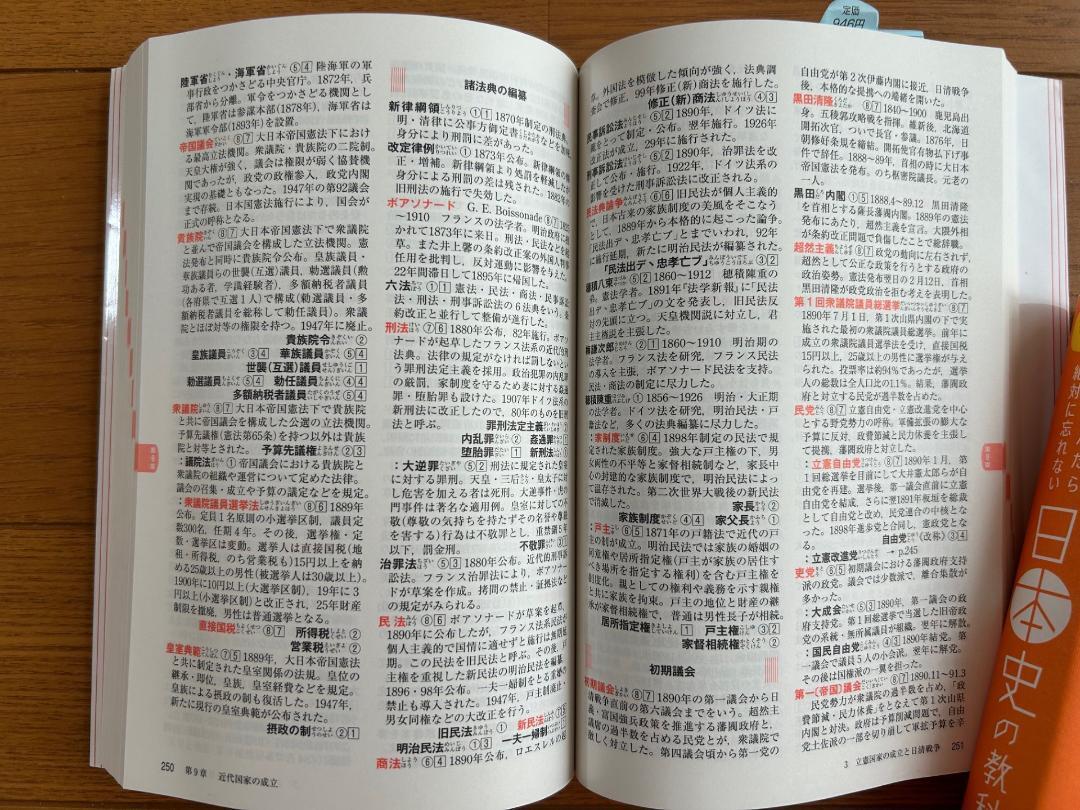 陸軍省・海軍省 ⑤④ 陸海軍の軍
事行政をつかさどる中央官庁。1872年、兵
部省から分離。軍令をつかさどる機関とし
て、陸軍省は参謀本部(1878年)、海軍省は
海軍軍令部(1893年)を設置。
帝国議会 ⑧⑦ 大日本帝国憲法下におけ
る最高立法機関。衆議院・貴族院の二院制。
天皇大権が強く、議会は権限が弱く協賛機
関であったが、政党の政権参入、政党内閣
実現の基礎ともなった。1947年の第92議会
まで存続。日本国憲法施行により、国会が
正式の呼称となる。
貴族院 ⑧⑦ 大日本帝国憲法下で衆議院
と並んで帝国議会を構成した立法機関。憲
法発布と同時に貴族院令公布。皇族議員・
華族議員らの世襲(互選)議員、勅選議員(勲
功ある者、学識経験者)、多額納税者議員
(各府県で互選1人)で構成(勅選議員・多
額納税者議員を総称して勅任議員)。衆議
院とほぼ対等の権限を持つ。1947年に廃止。
貴族院令 ②
皇族議員 ③④ 華族議員 ⑤④
世襲(互選)議員 ①
勅選議員 ⑤④ 勅任議員 ④④
多額納税者議員 ⑤④
衆議院 ⑧⑦ 大日本帝国憲法下で貴族院
と共に帝国議会を構成した公選の立法機関。
予算先議権(憲法第65条)を持つ以外は貴族
院と対等とされた。 予算先議権 ②③
:議院法 ① 帝国議会における貴族院と
衆議院の組織や運営について定めた法律。
議会の召集・成立や予算の議定などを規定。
:衆議院議員選挙法 ⑧⑥ 1889年
公布。定員1名原則の小選挙区制、議員定
数300名、任期4年。その後、選挙権・定
数・選挙区は変動。選挙人は直接国税(地
租・所得税、のち営業税も)15円以上を納
める25歳以上の男性(被選挙人は30歳以上)。
1900年に10円以上(大選挙区制)、19年に3
円以上(小選挙区制)と改正され、25年財産
制限を撤廃、男性は普通選挙となる。
直接国税 ⑧⑦ 所得税 ②
営業税 ②
皇室典範 ⑦⑤ 1889年、大日本帝国憲法
と共に制定された皇室関係の法規。皇位の
継承・即位、皇族、皇室経費などを規定。
皇族による摂政の制も復活した。1947年、
新たに現行の皇室典範が公布された。
摂政の制 ②①
250 第9章 近代国家の成立
諸法典の編纂
新律綱領 ①① 1870年制定の刑法典。
明・清律に公事方御定書
身分により刑罰に差があった。
改定律例 ① 1873年公布。新律綱領の補
正・増補。新律綱領より処罰を軽減したが
身分による刑罰の差は残された。1882年の
旧刑法の施行で失効。
ボアソナード G. E. Boissonade ⑧⑦ 1825
～1910 フランスの法学者。明治政府に招
かれて1873年に来日。刑法・民法などを起
草。また井上馨の条約改正案の外国人判事
任用を批判し、反対運動に影響を与えた。
22年間滞日して1895年に帰国した。
六法 ①① 憲法・民法・商法・民事訴訟
法・刑法・刑事訴訟法の6法典をいう。条
約改正と並行して整備が進行した。
刑法 ⑦⑥ 1880年公布、82年施行。ボアソ
ナードが起草したフランス法系の近代的刑
法典。法律の規定がなければ罰しないとい
う罪刑法定主義を採用。政治犯罪の内乱罪
の厳罰、家制度を守るため妻に対する姦通
罪・堕胎罪も設けた。1907年ドイツ法系の
新刑法に改正したので、80年のものを旧刑
法と呼ぶ。 罪刑法定主義
内乱罪 ② 姦通罪
堕胎罪 ① 新刑法
:大逆罪 ⑤② 刑法に規定された皇室
に対する罪。天皇・三后・皇太子に対
し危害を加える者は死刑。大逆事件・虎の
門事件は著名な適用例。皇室に対しての不
敬(尊敬の気持ちを持たずその名誉や尊厳
を害する)行為は不敬罪とし、重禁錮5年
以下、罰金刑。 不敬罪
治罪法 ⑤③ 1880年公布。近代的刑事訴
訟法。フランス治罪法により、ボアソナー
ドが草案を作成。拷問の禁止・証拠法など
の規定がみられる。
民法 ⑧⑥ ボアソナードが草案を起草、
1890年に公布したが、フランス法系民法が
個人主義的で国情に適せずと施行は無期延
期。この民法を旧民法と呼ぶ。その後、戸
主権を重視した新民法の明治民法を編纂、
1896・98年公布。一夫一婦制をとる重婚の
禁止も導入された。1947年、戸主制廃止・
男女同権などの大改正を行う。
旧民法 ① 新民法
明治民法 ①③ 一夫一婦制
商法 ⑥④ 1890年公布、ロエスレルの起
草。外国法を模倣した傾向が強く、法典調
査会で修正、99年修正(新)商法を施行した。
修正(新)商法 ④③
民事訴訟法 ⑤② 1890年、ドイツ法に
範をとって制定・公布。翌年施行。1926年
改正法が成立、29年に施行された。
刑事訴訟法 ⑤② 1890年、治罪法を改
正して公布・施行。1922年、ドイツ法系の
影響を受けた刑事訴訟法に改正される。
民法典論争 ⑥⑥ 旧民法が個人主義的
で、日本古来の家族制度の美風をそこなう
として、1889年から本格的に起こった論争。
「民法出デヽ忠孝亡ブ」とまでいわれ、92年
に施行延期、新たに明治民法が編纂された。
「民法出デヽ忠孝亡ブ」 ③②
穂積八束 ⑤② 1860～1912 穂積陳重の
弟。憲法学者。1891年「法学新報」に「民法
出デヽ忠孝亡ブ」の文を発表し、旧民法反
対の先頭に立つ。天皇機関説に対立し、君
主主権説を主張した。
梅謙次郎 ②① 1860～1910 明治期の
法学者。フランス法を研究。フランス民法
の導入を主張、ボアソナード民法を支持。
民法・商法の制定に尽力した。
穂積陳重 ① 1856～1926 明治・大正期
の法学者。ドイツ法を研究。明治民法・戸
籍法など、多くの法典編纂に尽力した。
:家制度 ⑥④ 1898年制定の民法で規
定された家族制度。強大な戸主権の下、男
女両性の不平等と家督相続制など、家長中
心の封建的な家族制度で、明治民法によっ
て温存された。第二次世界大戦後の新民法
で消滅した。 家長 ②
家族制度 ④④ 家父長 ①
:戸主 ⑥⑤ 1871年の戸籍法で近代の戸
主の制が成立。明治民法では家族の婚姻の
同意権や居所指定権(戸主が家族の居住す
べき場所を指定する権利)を含む戸主権を
制度化。親としての権利や義務を示す親権
と共に家族を拘束。戸主の地位と財産の継
承が家督相続権で、普通は男性長子が相続。
居所指定権 ① 戸主権 ③②
家督相続権 ②
初期議会
初期議会 ⑧⑦ 1890年の第一議会から日
清戦争直前の第六議会までをいう。超然主
義・富国強兵政策を推進する藩閥政府と、
議会の過半数を占める民党とが、衆議院で
激しく対立した。第四議会頃から第一党の
自由党が第2次伊藤内閣に接近、日清戦争
後、本格的な提携への端緒を開いた。
黒田清隆 ⑧⑦ 1840～1900 鹿児島出
身。五稜郭攻略戦を指揮。維新後、北海道
開拓次官、ついで長官・参議。1876年、日
朝修好条規を締結。開拓使官有物払下げ事
件で辞任。1888～89年、首相の時に大日本
帝国憲法を発布。のち枢密院議長。元老の
一人。
黒田内閣 ①⑤ 1888.4～89.12 黒田清隆
を首相とする薩長藩閥内閣。1889年の憲法
発布にあたり、超然主義を宣言。大隈外相
が条約改正問題で負傷したことで総辞職。
超然主義 ⑧⑦ 政党の動向に左右されず、
超然として公正な政策を行うとする政府の
政治姿勢。憲法発布翌日の2月12日、首相
黒田清隆が政党政治を拒む考えを表明した。
第1回衆議院議員総選挙 ⑧⑦
1890年7月1日、第1次山県内閣の下で実
施された最初の衆議院議員総選挙。前年に
成立の衆議院議員選挙法を受け、直接国税
15円以上、25歳以上の男性に選挙権が与え
られた。投票率は約94%であったが、選挙
人の総数は全人口比の1.1%。結果、藩閥政
府と対立する民党が過半数を占めた。
民党 ⑧⑦ 立憲自由党・立憲改進党を中心
とする野党勢力の呼称。軍備拡張の膨大な
予算に反対、政費節減と民力休養を主張し
て提携、藩閥政府と対立した。
:立憲自由党 ⑧⑦ 1890年1月、第
1回総選挙を目前にして大井憲太郎らが自
由党を再建。選挙後、第一議会直前に立憲
自由党を結成、さらに翌1891年板垣を総裁
として自由党と改め、民党連合の中核とな
った。1898年進歩党と合同し、憲政党とな
る。 自由党(改称) ③④
:立憲改進党 → p.245
吏党 ⑥⑤ 初期議会における藩閥政府支持
派の政党。議会では少数派で、離合集散が
多かった。
:大成会 ⑤③ 1890年、第一議会の政
府支持党。第1回総選挙で当選した旧帝政
党の系統・無所属議員が組織。翌年に解散。
:国民自由党 ④③ 1890年結党。第
一議会で議員5人の小会派。翌年に解党。
その後は国権派の一翼を担った。
第一(帝国)議会 ⑧⑦ 1890.11～91.3
民党勢力が衆議院の過半数を占め、「政
費節減・民力休養」をとなえて第1次山県
内閣と対決。政府は予算削減問題で、自由
党土佐派の一部を切り崩して軍拡予算を辛
3 立憲国家の成立と日清戦争 251
第9章
第9章
定価
946円
絶対に忘れない
日本史の教科